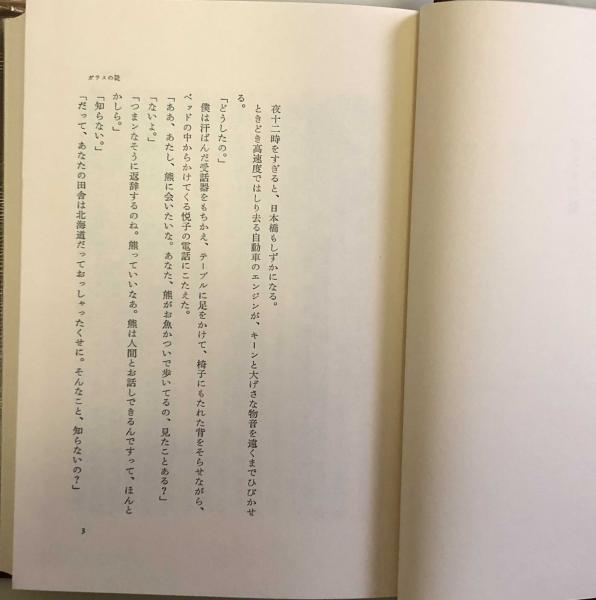 ガラスの靴
夜十二時をすぎると、日本橋もしずかになる。
ときどき高速度ではしり去る自動車のエンジンが、キーンと大げさな物音を遠くまでひびかせ
る。
「どうしたの。」
僕は汗ばんだ受話器をもちかえ、テーブルに足をかけて、椅子にもたれた背をそらせながら、
ベッドの中からかけてくる悦子の電話にこたえた。
「ああ、あたし、熊に会いたいな。あなた、熊がお魚かついで歩いてるの、見たことある?」
「ないよ。」
「つまンなそうに返辞するのね。熊っていいなあ。熊は人間とお話しできるんですって、ほんと
かしら。」
「知らない。」
「だって、あなたの田舎は北海道だっておっしゃったくせに。そんなこと、知らないの?」
3